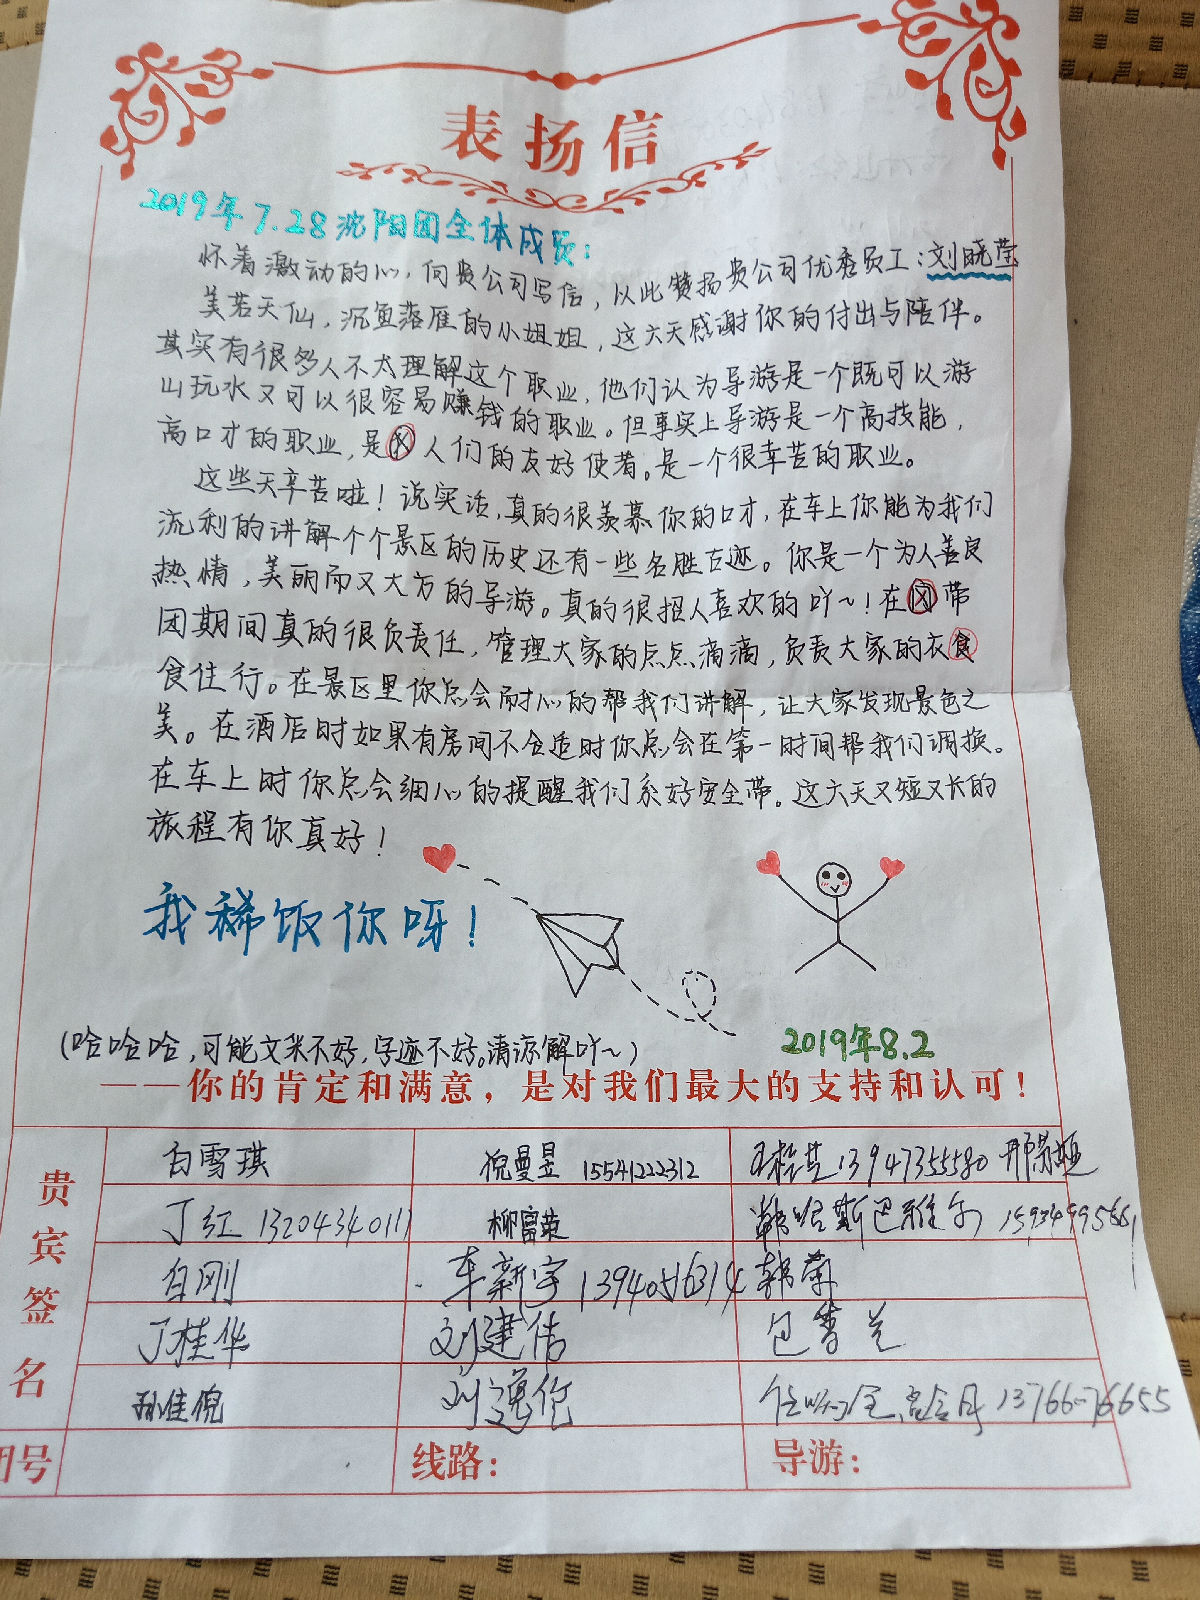 表扬信
2019年7.28沈阳团全体成员：
怀着激动的心，向贵公司写信，以此赞扬贵公司优秀员工：刘晓莹
美若天仙，沉鱼落雁的小姐姐，这六天感谢你的付出与陪伴。
其实有很多人不太理解这个职业，他们认为导游是一个既可以游
山玩水又可以很容易赚钱的职业。但事实上导游是一个高技能，
高口才的职业，是人们的友好使者。是一个很辛苦的职业。
这些天辛苦啦！说实话，真的很羡慕你的口才，在车上你能为我们
流利的讲解个个景区的历史还有一些名胜古迹。你是一个为人善良
热情，美丽而又大方的导游。真的很招人喜欢的吖~！在带
团期间真的很负责任，管理大家的点点滴滴，负责大家的衣食
食住行。在景区里你总会耐心的帮我们讲解，让大家发现景色之
美。在酒店时如果有房间不合适时你总会在第一时间帮我们调换。
在车上时你总会细心的提醒我们系好安全带。这六天又短又长的
旅程有你真好！
我稀饭你呀！
（哈哈哈，可能文采不好，字迹不好。请谅解吖~）
2019年8.2
——你的肯定和满意，是对我们最大的支持和认可！
贵宾签名
白雪琪 倪曼昱 15541222312 13947355580
丁红 13204340111 柳富荣 韩哈斯巴雅尔
白刚 车新宇 13940516314 韩菊
丁桂华 刘建伟 包香兰
孙佳倪 刘逸伦
团号 线路： 导游：